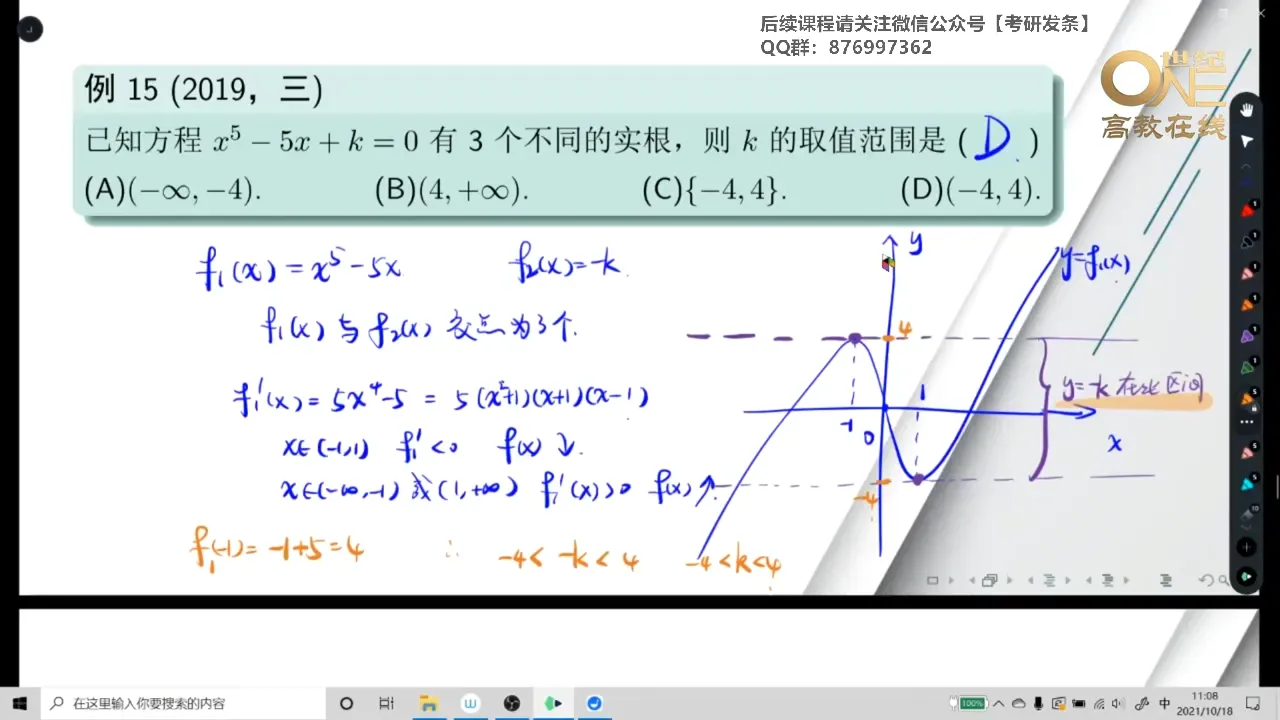 后续课程请关注微信公众号【考研发条】
QQ群：876997362
世纪
ONE
高教在线
例 15 (2019，三)
已知方程 x⁵ − 5x + k = 0 有 3 个不同的实根，则 k 的取值范围是 ( D. )
(A)(−∞, −4). (B)(4, +∞). (C){−4, 4}. (D)(−4, 4).
f₁(x) = x⁵ − 5x f₂(x) = −k.
f₁(x) 与 f₂(x) 交点为3个.
f₁'(x) = 5x⁴ − 5 = 5(x²+1)(x+1)(x−1)
x∈(−1,1) f₁' < 0 f(x) ↓.
x∈(−∞,−1) 或 (1,+∞) f₁'(x) > 0 f(x) ↑.
f₁(−1) = −1+5 = 4 ∴ −4 < −k < 4 −4 < k < 4
y
y=f₁(x)
4
1
y=−k 在此区间
−1
0
x
−4
在这里输入你要搜索的内容
100%
中
11:08
2021/10/18